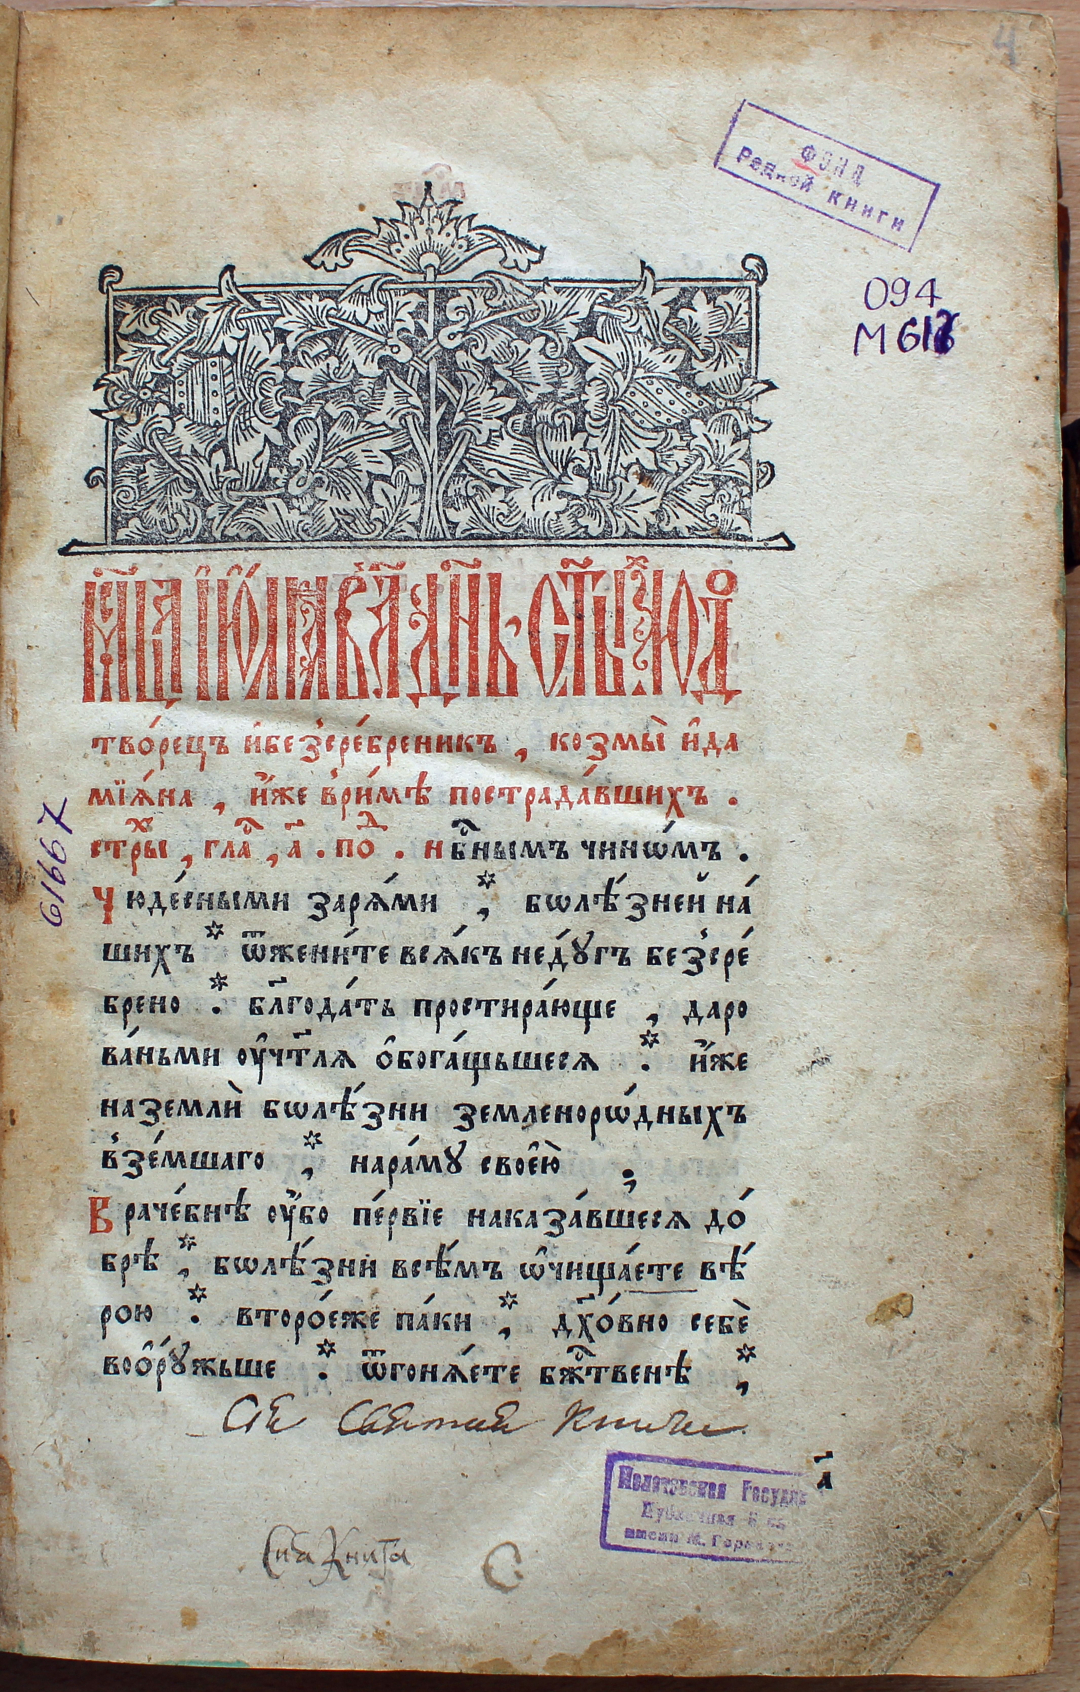 4
ФОНД
Редкой книги
094
М 618
мⷭ҇ца і҆ю́лѧ въ а҃ дн҃ь ст҃ы́хъ чюдо
тво́рецъ и҆безсре́бреникъ , козмы̀ и҆да
мїѧ́на , и҆́же в̾ри́мѣ пострада́вшихъ .
стⷯры , глаⷡ , а҃ . поⷣ . нбⷭ҇нымъ чинѡ́мъ .
Чюде́сными зарѧ́ми ⁏ болѣ́зней на́
шихъ * ѿжени́те всѧ́къ неду́гъ безсре́
брено . бл҃года́ть простира́юще , даро
ва́ньми оу҆чт҃лѧ ѡ҆бога́щьшесѧ . и҆́же
наземлѝ бѡлѣ́зни земленорѡ́дныхъ
взе́мшаго , нара́му своею̀ ⁏
Враче́бнѣ оу҆́бо пе́рвїе наказа́вшесѧ до́
брѣ , бѡлѣ́зни всѣ́мъ ѡ҆чища́ете вѣ́
рою . второ́еже па́ки , дх҃о́вно себѐ
воѡ҆рꙋ́жьше . ѿгонѧ́ете бжⷭ҇твенѣ ,
61667
Сіѧ Святая Книга
а҃
Молотовская Госуда
Публичная б
имени М. Горького
Сиа Книга